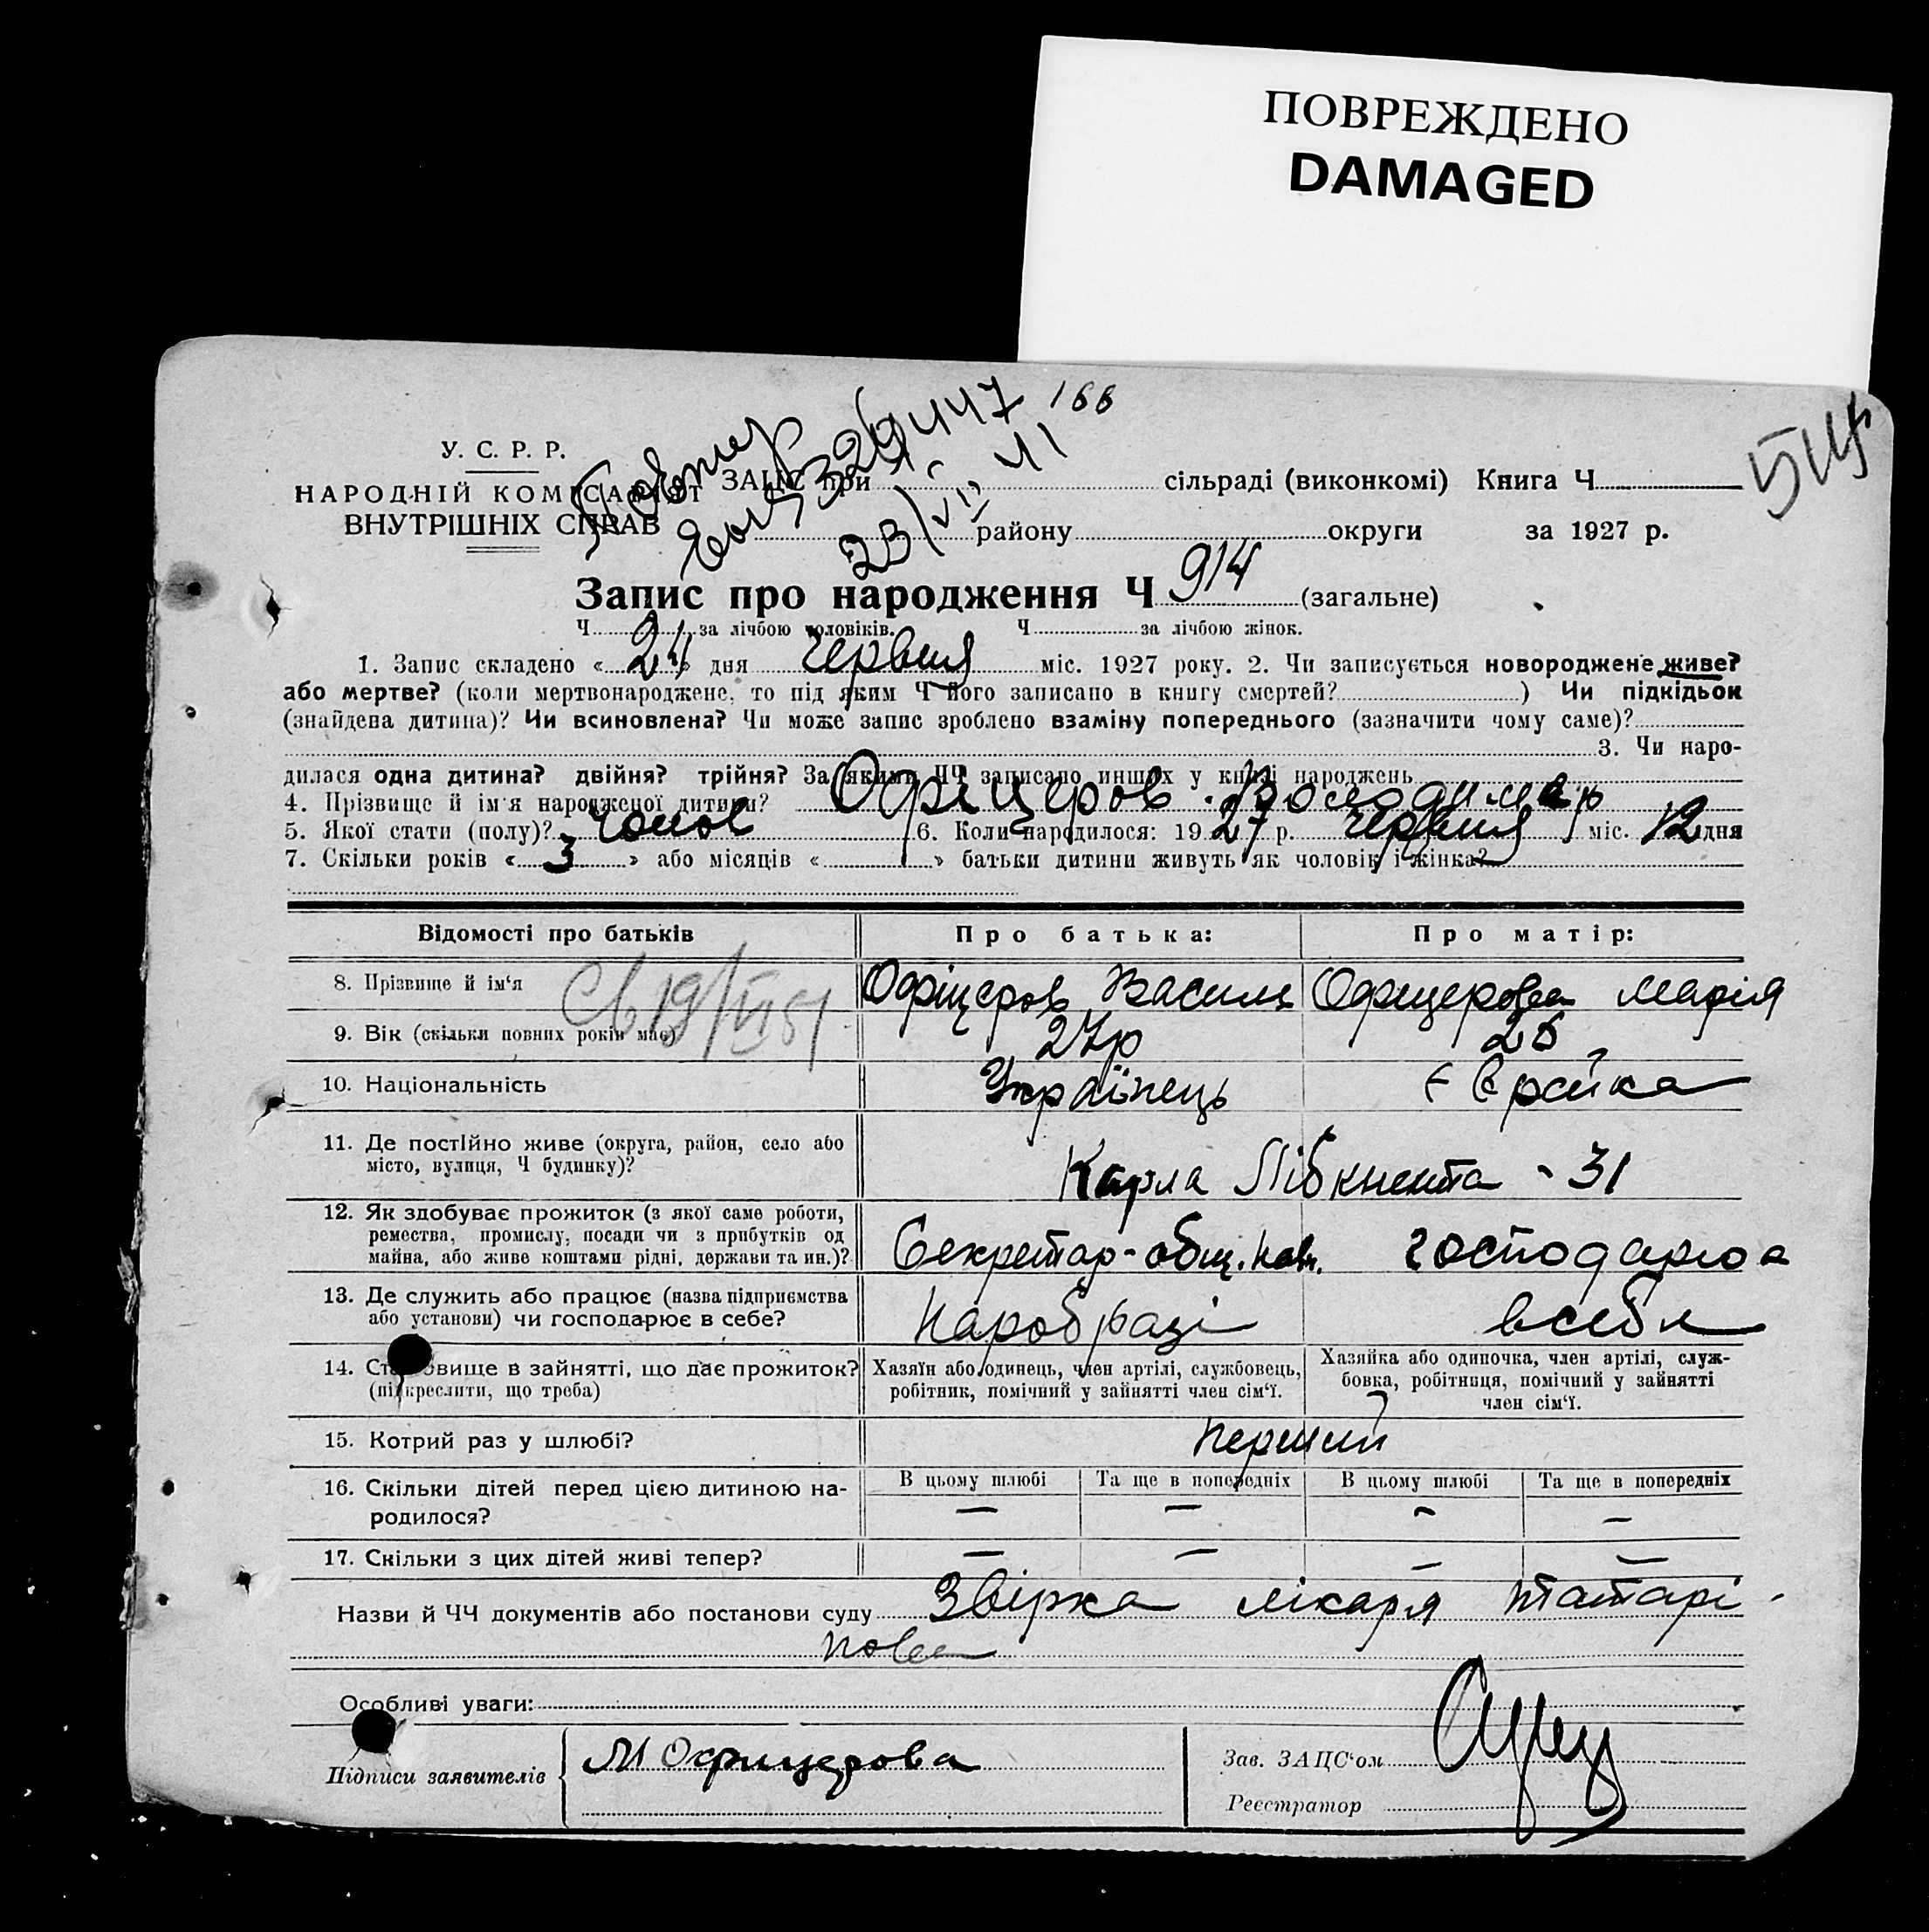 ПОВРЕЖДЕНО
DAMAGED
166
У. С. Р. Р.
НАРОДНІЙ КОМІСАРІЯТ
ВНУТРІШНІХ СПРАВ
Повтор
329447
23/VII 41
ЗАЦС при сільраді (виконкомі) Книга Ч
району округи за 1927 р.
Запис про народження Ч 914 (загальне)
Ч за лічбою чоловіків. Ч за лічбою жінок.
1. Запис складено « 24 » дня червня міс. 1927 року. 2. Чи записується новороджене живе?
або мертве? (коли мертвонароджене, то під яким Ч його записано в книгу смертей? ) Чи підкідьок
(знайдена дитина)? Чи всиновлена? Чи може запис зроблено взаміну попереднього (зазначити чому саме)?
3. Чи наро-
дилася одна дитина? двійня? трійня? За якими ЧЧ записано инших у книзі народжень
4. Прізвище й ім'я народженої дитини? Офіцеров Володимир
5. Якої стати (полу)? чолов 6. Коли народилося: 19 27 р. червня міс. 12 дня
7. Скільки років « 3 » або місяців « » батьки дитини живуть як чоловік і жінка?
Відомості про батьків Про батька: Про матір:
8. Прізвище й ім‘я Офіцеров Василь Офицерова Марія
9. Вік (скільки повних років має) 27р 26
10. Національність Українець Єврейка
11. Де постійно живе (округа, район, село або
місто, вулиця, Ч будинку)? Карла Лібкнехта - 31
12. Як здобуває прожиток (з якої саме роботи,
ремества, промислу, посади чи з прибутків од
майна, або живе коштами рідні, держави та ин.)? Секретар - общ. господарює
13. Де служить або працює (назва підприємства
або установи) чи господарює в себе? Наробразі в себе
14. Становище в зайнятті, що дає прожиток?
(підкреслити, що треба)
Хазяїн або одинець, член артілі, службовець,
робітник, помічний у зайнятті член сім‘ї.
Хазяйка або одиночка, член артілі, служ-
бовка, робітниця, помічний у зайнятті
член сім‘ї.
15. Котрий раз у шлюбі? перший
16. Скільки дітей перед цією дитиною на-
родилося?
В цьому шлюбі Та ще в попередніх В цьому шлюбі Та ще в попередніх
— — — —
17. Скільки з цих дітей живі тепер? — — — —
Назви й ЧЧ документів або постанови суду Звірка лікаря Татарі-
нова
Особливі уваги:
Підписи заявителів М Офицерова
Зав. ЗАЦС‘ом
Реєстратор